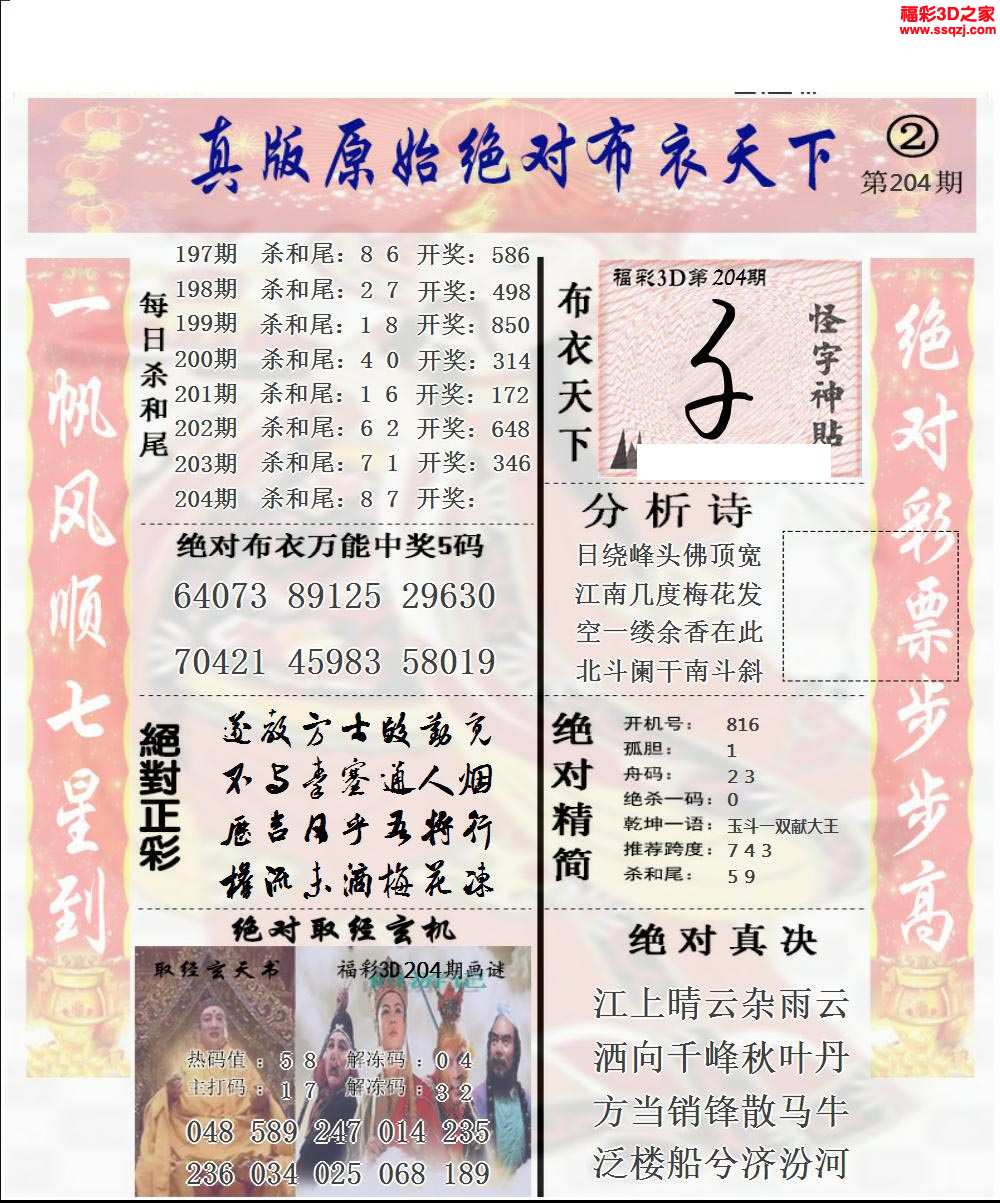 福彩3D之家
www.ssqzj.com
真版原始绝对布衣天下
②
第204期
一帆风顺七星到
每日杀和尾
197期 杀和尾：8 6 开奖：586
198期 杀和尾：2 7 开奖：498
199期 杀和尾：1 8 开奖：850
200期 杀和尾：4 0 开奖：314
201期 杀和尾：1 6 开奖：172
202期 杀和尾：6 2 开奖：648
203期 杀和尾：7 1 开奖：346
204期 杀和尾：8 7 开奖：
绝对布衣万能中奖5码
64073 89125 29630
70421 45983 58019
絕對正彩
遂教方士殷勤觅
不与羣塞通人烟
歷吉月乎吾将行
権流未滴梅花冻
绝对取经玄机
取经玄天书
福彩3D204期画谜
热码值：5 8 解冻码：0 4
主打码：1 7 解冻码：3 2
048 589 247 014 235
236 034 025 068 189
布衣天下
福彩3D第204期
怪字神贴
分析诗
日绕峰头佛顶宽
江南几度梅花发
空一缕余香在此
北斗阑干南斗斜
绝对精简
开机号：816
孤胆：1
舟码：2 3
绝杀一码：0
乾坤一语：玉斗一双献大王
推荐跨度：7 4 3
杀和尾：5 9
绝对真决
江上晴云杂雨云
洒向千峰秋叶丹
方当销锋散马牛
泛楼船兮济汾河
绝对彩票步步高